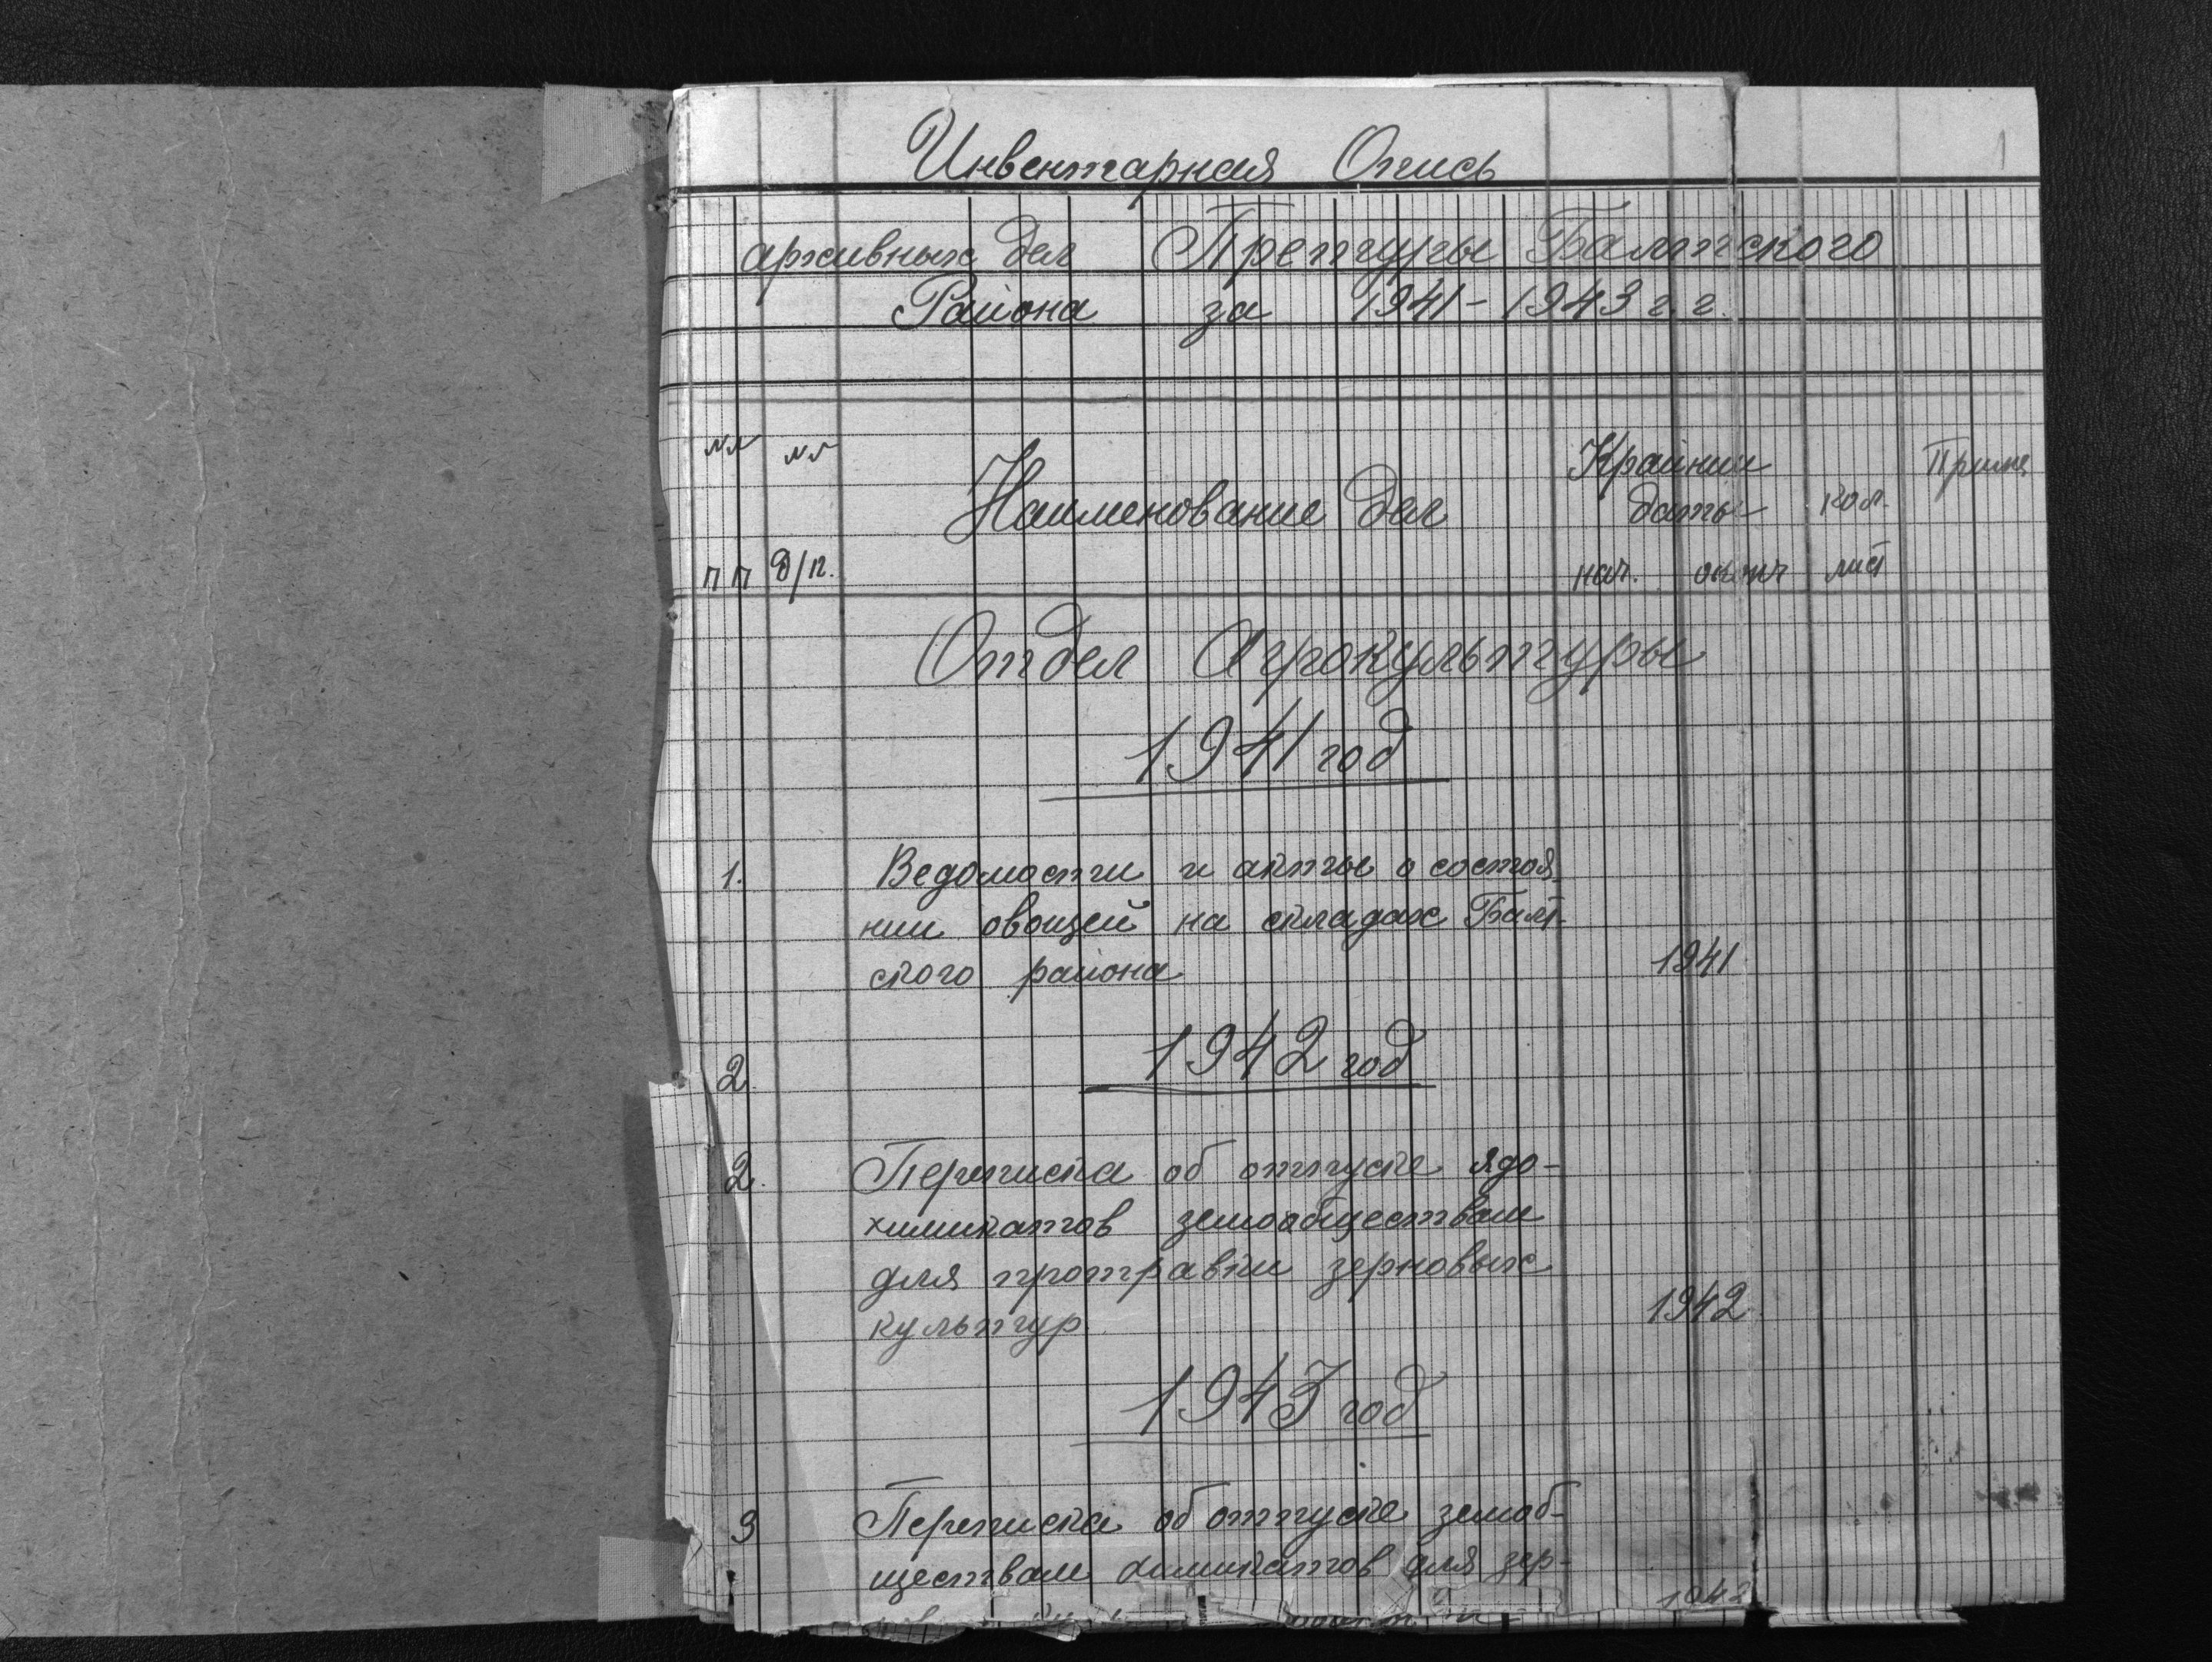 1
Инвентарная Опись
архивных дел Претуры Балтского
Района за 1941-1943 г.г.
№№ №№ Наименование дел Крайнии даты кол. Приме
пп д/п. нач. оконч лист
Отдел Агрокультуры
1941 год
1. Ведомости и акты о состоя-
нии овощей на складах Балт-
ского района 1941
1942 год
2.
2. Переписка об отпуске ядо-
химикатов земообществам
для протравки зерновых
культур 1942
1943 год
3 Переписка об отпуске земоб-
ществам химикатов для зер-